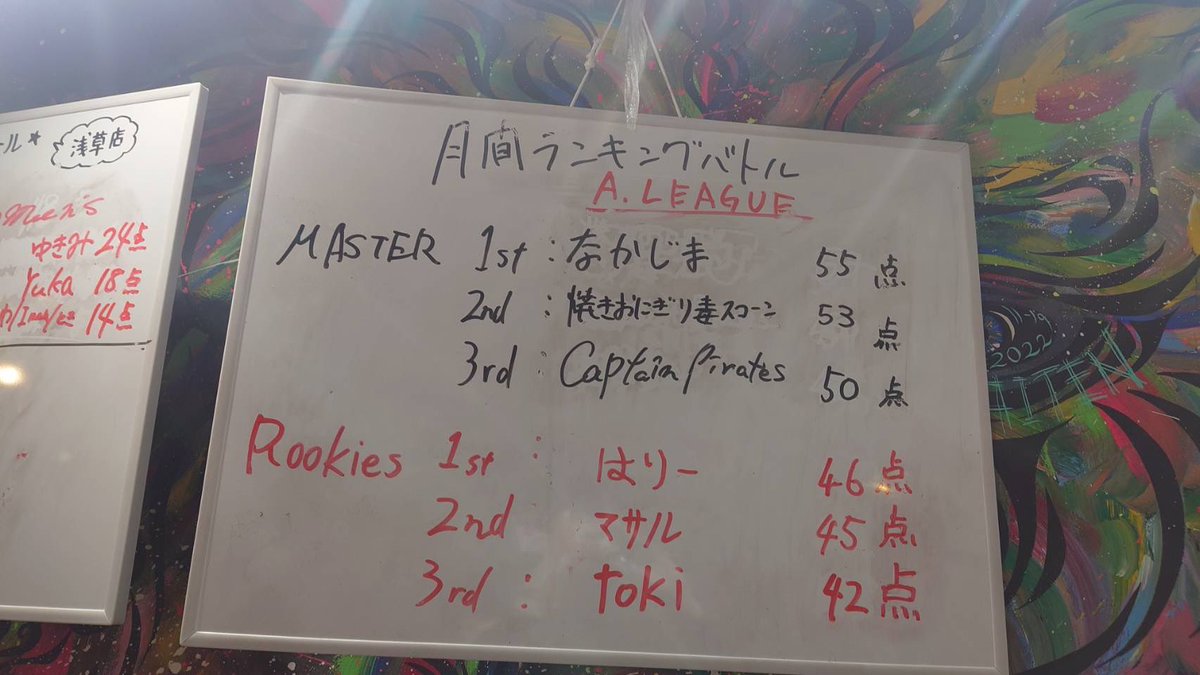 ール*
浅草店
Men's
ゆきみ 24点
Yuka 18点
14点
月間ランキングバトル
A.LEAGUE
MASTER 1st : なかじま 55点
2nd : 焼きおにぎり毒スコーン 53点
3rd : Captain Pirates 50点
Rookies 1st : はりー 46点
2nd マサル 45点
3rd : toki 42点
11.19
2022